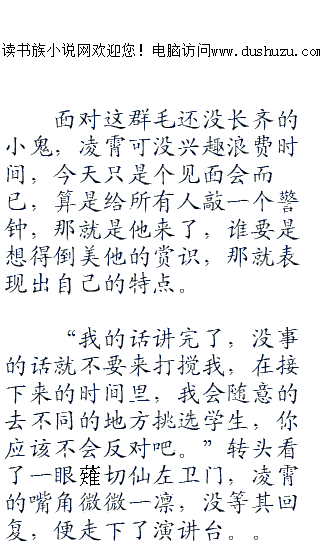 读书族小说网欢迎您！电脑访问www.dushuzu.com
面对这群毛还没长齐的
小鬼，凌霄可没兴趣浪费时
间，今天只是个见面会而
已，算是给所有人敲一个警
钟，那就是他来了，谁要是
想得倒美他的赏识，那就表
现出自己的特点。
“我的话讲完了，没事
的话就不要来打搅我，在接
下来的时间里，我会随意的
去不同的地方挑选学生，你
应该不会反对吧。”转头看
了一眼薙切仙左卫门，凌霄
的嘴角微微一凛，没等其回
复，便走下了演讲台。。